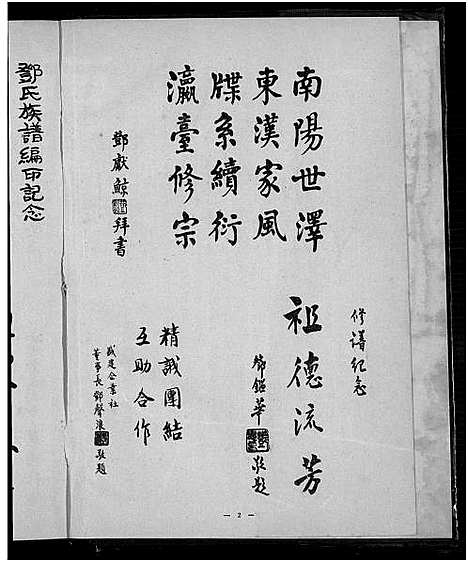 南陽世澤
東漢家風
牒系續衍
瀛臺修宗
鄧獻鯨
拜書
修譜紀念
祖德流芳
鄧鎰華
敬題
精誠團結
互助合作
盛達企業社
董事長鄧聲浪
敬題
— 2 —
鄧氏族譜編印記念